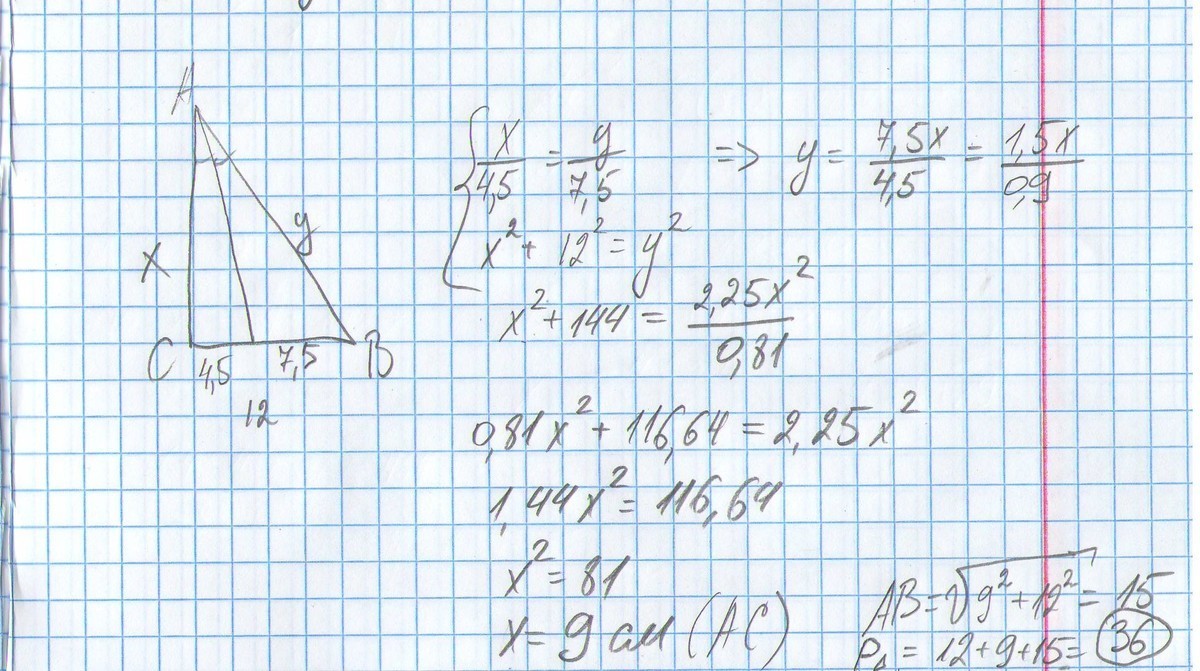 A
x
y
C
4,5
7,5
B
12
{ x/4,5 = y/7,5 => y = 7,5x/4,5 = 1,5x/0,9
x² + 12² = y²
x² + 144 = 2,25x²/0,81
0,81x² + 116,64 = 2,25x²
1,44x² = 116,64
x² = 81
x = 9 см (AC)
AB = √9² + 12² = 15
P△ = 12 + 9 + 15 = 36